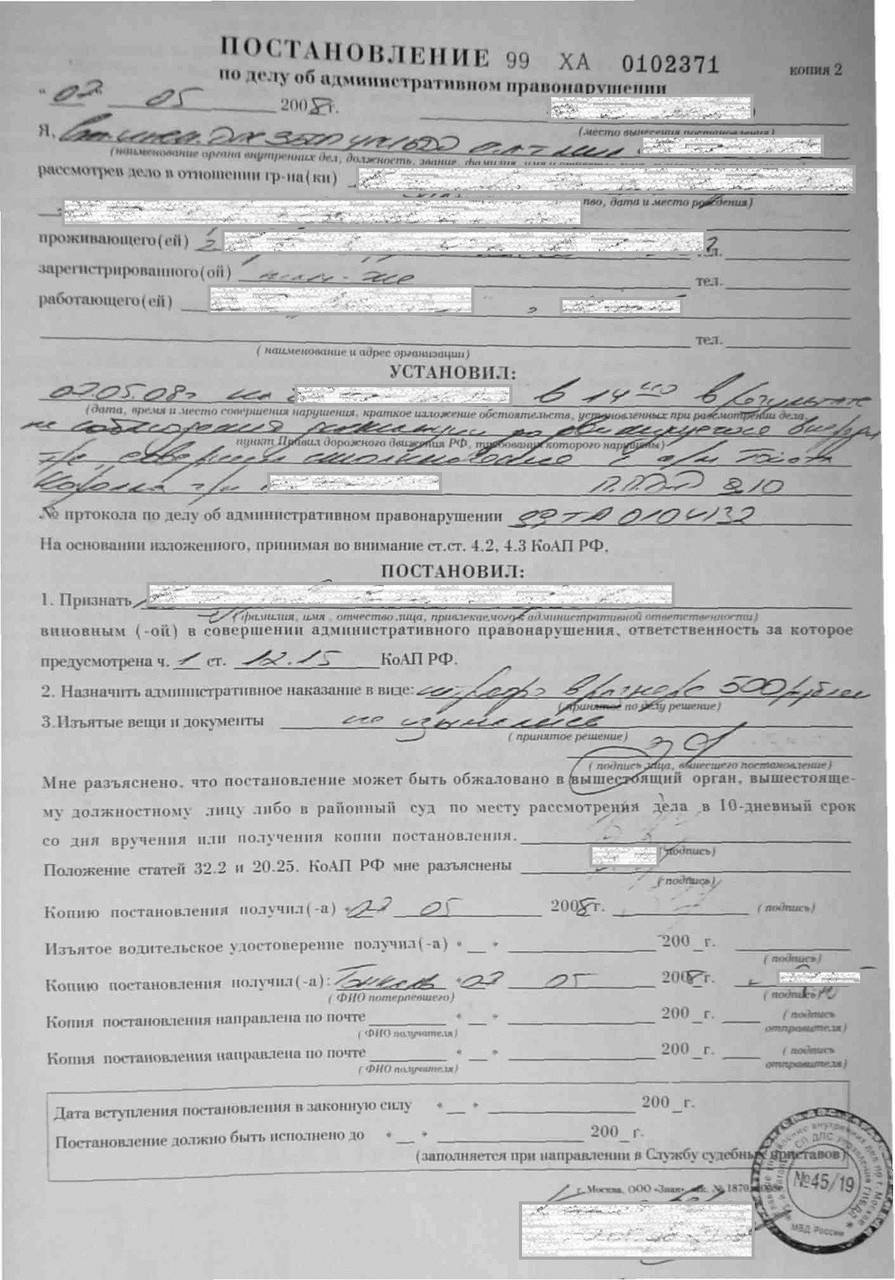 ПОСТАНОВЛЕНИЕ 99 ХА 0102371
копия 2
по делу об административном правонарушении
" 07 " 05 2008г.
(место вынесения постановления)
Я,
(наименование органа внутренних дел, должность, звание, фамилия, имя
рассмотрев дело в отношении гр-на(ки)
дата и место рождения)
проживающего(ей) тел.
зарегистрированного(ой) там-же тел.
работающего(ей)
тел.
(наименование и адрес организации)
УСТАНОВИЛ:
07.05.08г на в 14 40 в результате
(дата, время и место совершения нарушения, краткое изложение обстоятельств, установленных при рассмотрении дела,
не соблюдения дистанции до движущегося впереди
пункт Правил дорожного движения РФ, требования которого нарушены)
т/с совершил столкновение с а/м Тойота
Королла г/н П.П.Д.Д 9.10
№ пртокола по делу об административном правонарушении 99ТА0104132
На основании изложенного, принимая во внимание ст.ст. 4.2, 4.3 КоАП РФ,
ПОСТАНОВИЛ:
1. Признать
(фамилия, имя , отчество лица, привлекаемого к административной ответственности)
виновным (-ой) в совершении административного правонарушения, ответственность за которое
предусмотрена ч. 1 ст. 12.15 КоАП РФ.
2. Назначить административное наказание в виде: штрафа в размере 500 рублей
(принятое по делу решение)
3.Изъятые вещи и документы не изымались
( принятое решение)
( подпись лица, вынесшего постановление)
Мне разъяснено, что постановление может быть обжаловано в вышестоящий орган, вышестояще-
му должностному лицу либо в районный суд по месту рассмотрения дела в 10-дневный срок
со дня вручения или получения копии постановления.
(подпись)
Положение статей 32.2 и 20.25. КоАП РФ мне разъяснены
( подпись)
Копию постановления получил(-а) " 07 05 2008г. ( подпись)
Изъятое водительское удостоверение получил(-а) " " 200 г.
( подпись)
Копию постановления получил(-а): " 07 05 2008г.
( ФИО потерпевшего) ( подпись)
Копия постановления направлена по почте " " 200 г. ( подпись
( ФИО получателя) отправителя)
Копия постановления направлена по почте " " 200 г. ( подпись
( ФИО получателя) отправителя)
Дата вступления постановления в законную силу " " 200 г.
Постановление должно быть исполнено до " " 200 г.
(заполняется при направлении в Службу судебных приставов)
г. Москва, ООО «Знак»
№45/19
МВД России